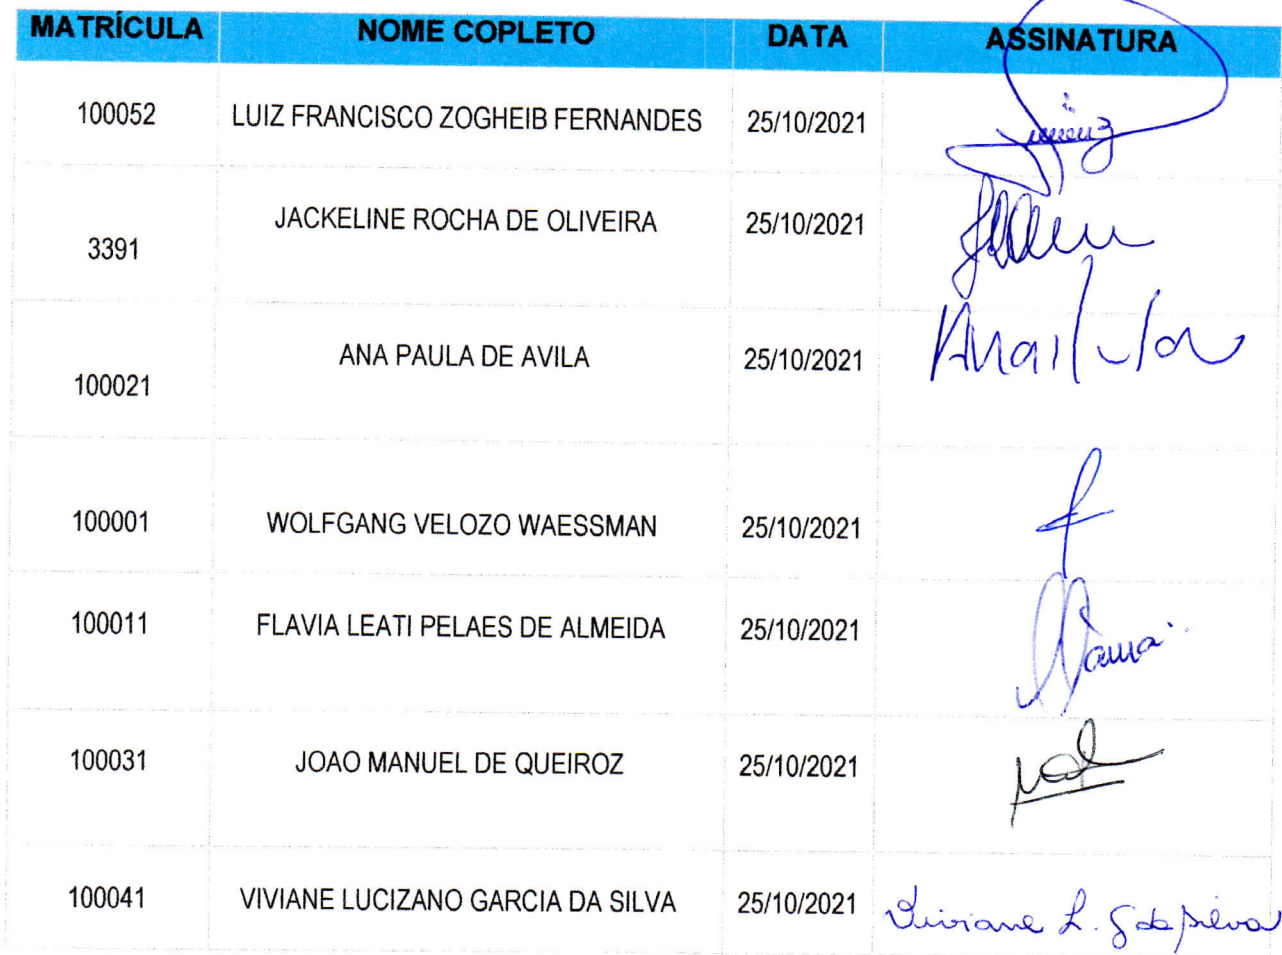 MATRÍCULA NOME COPLETO DATA ASSINATURA
100052 LUIZ FRANCISCO ZOGHEIB FERNANDES 25/10/2021
3391 JACKELINE ROCHA DE OLIVEIRA 25/10/2021
100021 ANA PAULA DE AVILA 25/10/2021
100001 WOLFGANG VELOZO WAESSMAN 25/10/2021
100011 FLAVIA LEATI PELAES DE ALMEIDA 25/10/2021
100031 JOAO MANUEL DE QUEIROZ 25/10/2021
100041 VIVIANE LUCIZANO GARCIA DA SILVA 25/10/2021 Viviane L. G da Silva